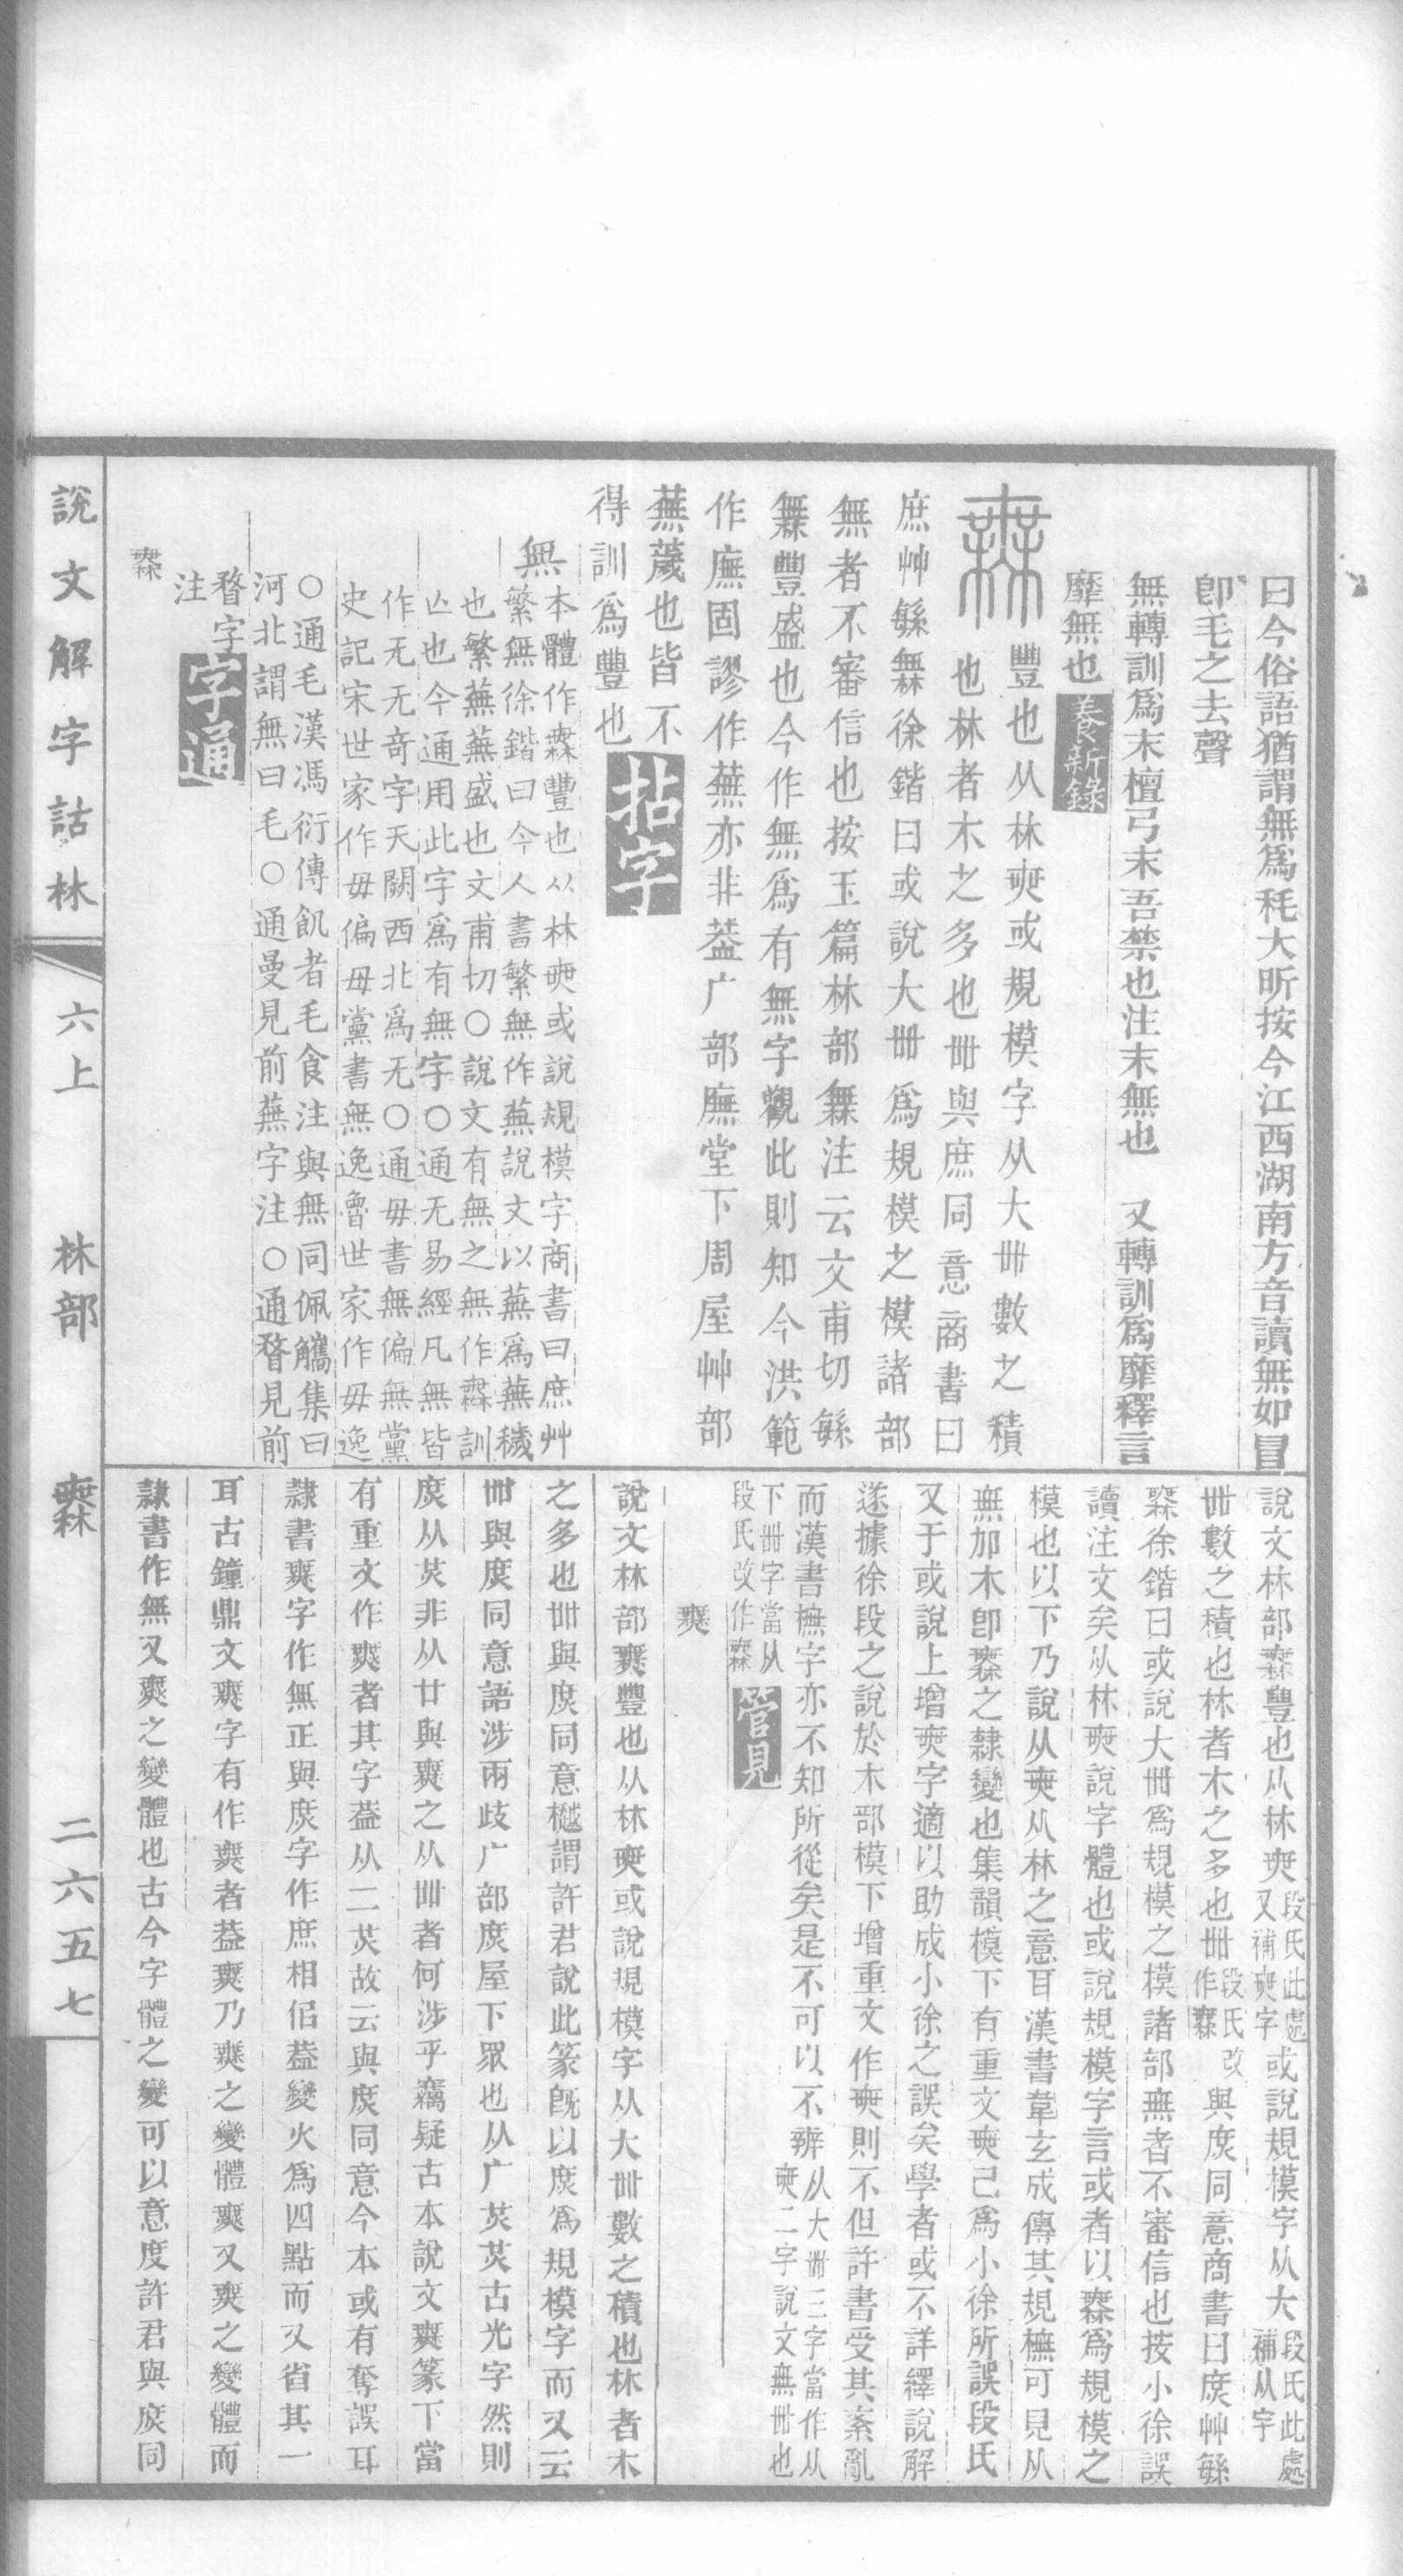 曰今俗語猶謂無爲耗大昕按今江西湖南方音讀無如冒
卽毛之去聲
無轉訓爲末檀弓末吾禁也注末無也　又轉訓爲靡釋言
靡無也養新錄
豐也从林奭或規模字从大卌數之積
也林者木之多也卌與庶同意商書曰
庶艸緐無徐鍇曰或說大卌爲規模之模諸部
無者不審信也按玉篇林部無注云文甫切緐
無豐盛也今作無爲有無字觀此則知今洪範
作廡固謬作蕪亦非葢广部廡堂下周屋艸部
蕪薉也皆不
得訓爲豐也拈字
無本體作𣞤豐也从林奭或說規模字商書曰庶艸
繁無徐鍇曰今人書繁無作蕪說文以蕪爲蕪穢
也繁蕪蕪盛也文甫切○說文有無之無作𣠮訓
亾也今通用此字爲有無字○通无易經凡無皆
作无无奇字天闕西北爲无○通毋書無偏無黨
史記宋世家作毋偏毋黨書無逸魯世家作毋逸
○通毛漢馮衍傳飢者毛食注與無同佩觿集曰
河北謂無曰毛○通曼見前蕪字注○通瞀見前
瞀字
注字通
𣞤
說文林部𣞤豐也从林奭段氏此處又補奭字或說規模字从大段氏此處補从字
卌數之積也林者木之多也卌段氏改作𣞤與庶同意商書曰庶艸緐
𣞤徐鍇曰或說大卌爲規模之模諸部無者不審信也按小徐誤
讀注文矣从林奭說字體也或說規模字言或者以𣞤爲規模之
模也以下乃說从奭从林之意耳漢書韋玄成傳其規橅可見从
無加木卽𣞤之隸變也集韻模下有重文奭已爲小徐所誤段氏
又于或說上增奭字適以助成小徐之誤矣學者或不詳繹說解
遂據徐段之說於木部模下增重文作奭則不但許書受其紊亂
而漢書橅字亦不知所從矣是不可以不辨从大卌三字當作从奭二字說文無卌也
下卌字當从段氏改作𣞤管見
說文林部𣞤豐也从林奭或說規模字从大卌數之積也林者木
之多也卌與庶同意樾謂許君說此篆旣以庶爲規模字而又云
卌與庶同意語涉兩歧广部庶屋下眾也从广炗炗古光字然則
庶从炗非从廿與𣞤之从卌者何涉乎竊疑古本說文𣞤篆下當
有重文作𣞤者其字葢从二炗故云與庶同意今本或有奪誤耳
隸書𣞤字作無正與庶字作庶相侣葢變火爲四點而又省其一
耳古鐘鼎文𣞤字有作𣞤者葢𣞤乃𣞤之變體𣞤又奭之變體而
隸書作無又奭之變體也古今字體之變可以意度許君與庶同
說文解字詁林　六上　林部　𣞤　二六五七